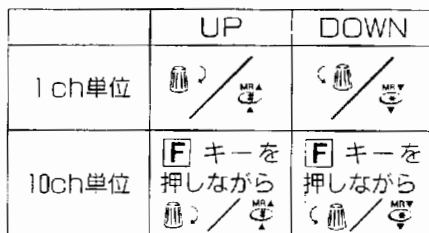 UP DOWN
1ch単位
MR▲
▲
MR▼
▼
10ch単位
F キーを
押しながら
MR▲
▲
F キーを
押しながら
MR▼
▼